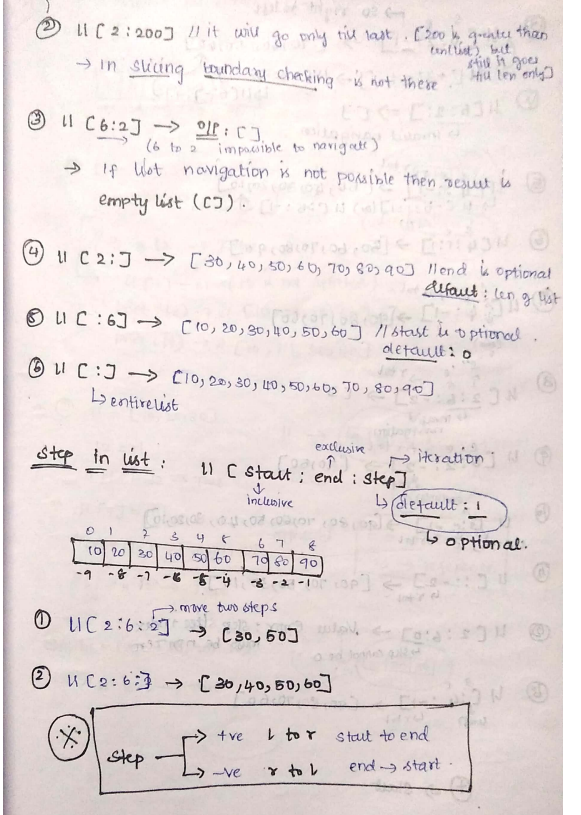 ② l1[2:200] // it will go only till last. [200 is greater than
len(list) but
still it goes
till len only]
→ In slicing boundary checking is not there.
③ l1[6:2] → o/p: []
(6 to 2 impossible to navigate)
→ If list navigation is not possible then result is
empty list ([]).
④ l1[2:] → [30, 40, 50, 60, 70, 80, 90] // end is optional
default: len of list
⑤ l1[:6] → [10, 20, 30, 40, 50, 60] // start is optional.
default: 0
⑥ l1[:] → [10, 20, 30, 40, 50, 60, 70, 80, 90]
↳ entire list
Step in list: l1[start: end: step]
exclusive
→ iteration
inclusive
↳ default: 1
↳ optional.
0 1 2 3 4 5 6 7 8
10 20 30 40 50 60 70 80 90
-9 -8 -7 -6 -5 -4 -3 -2 -1
→ move two steps
① l1[2:6:2] → [30, 50]
② l1[2:6:] → [30, 40, 50, 60]
※ Step → +ve l to r start to end
→ -ve r to l end → start.